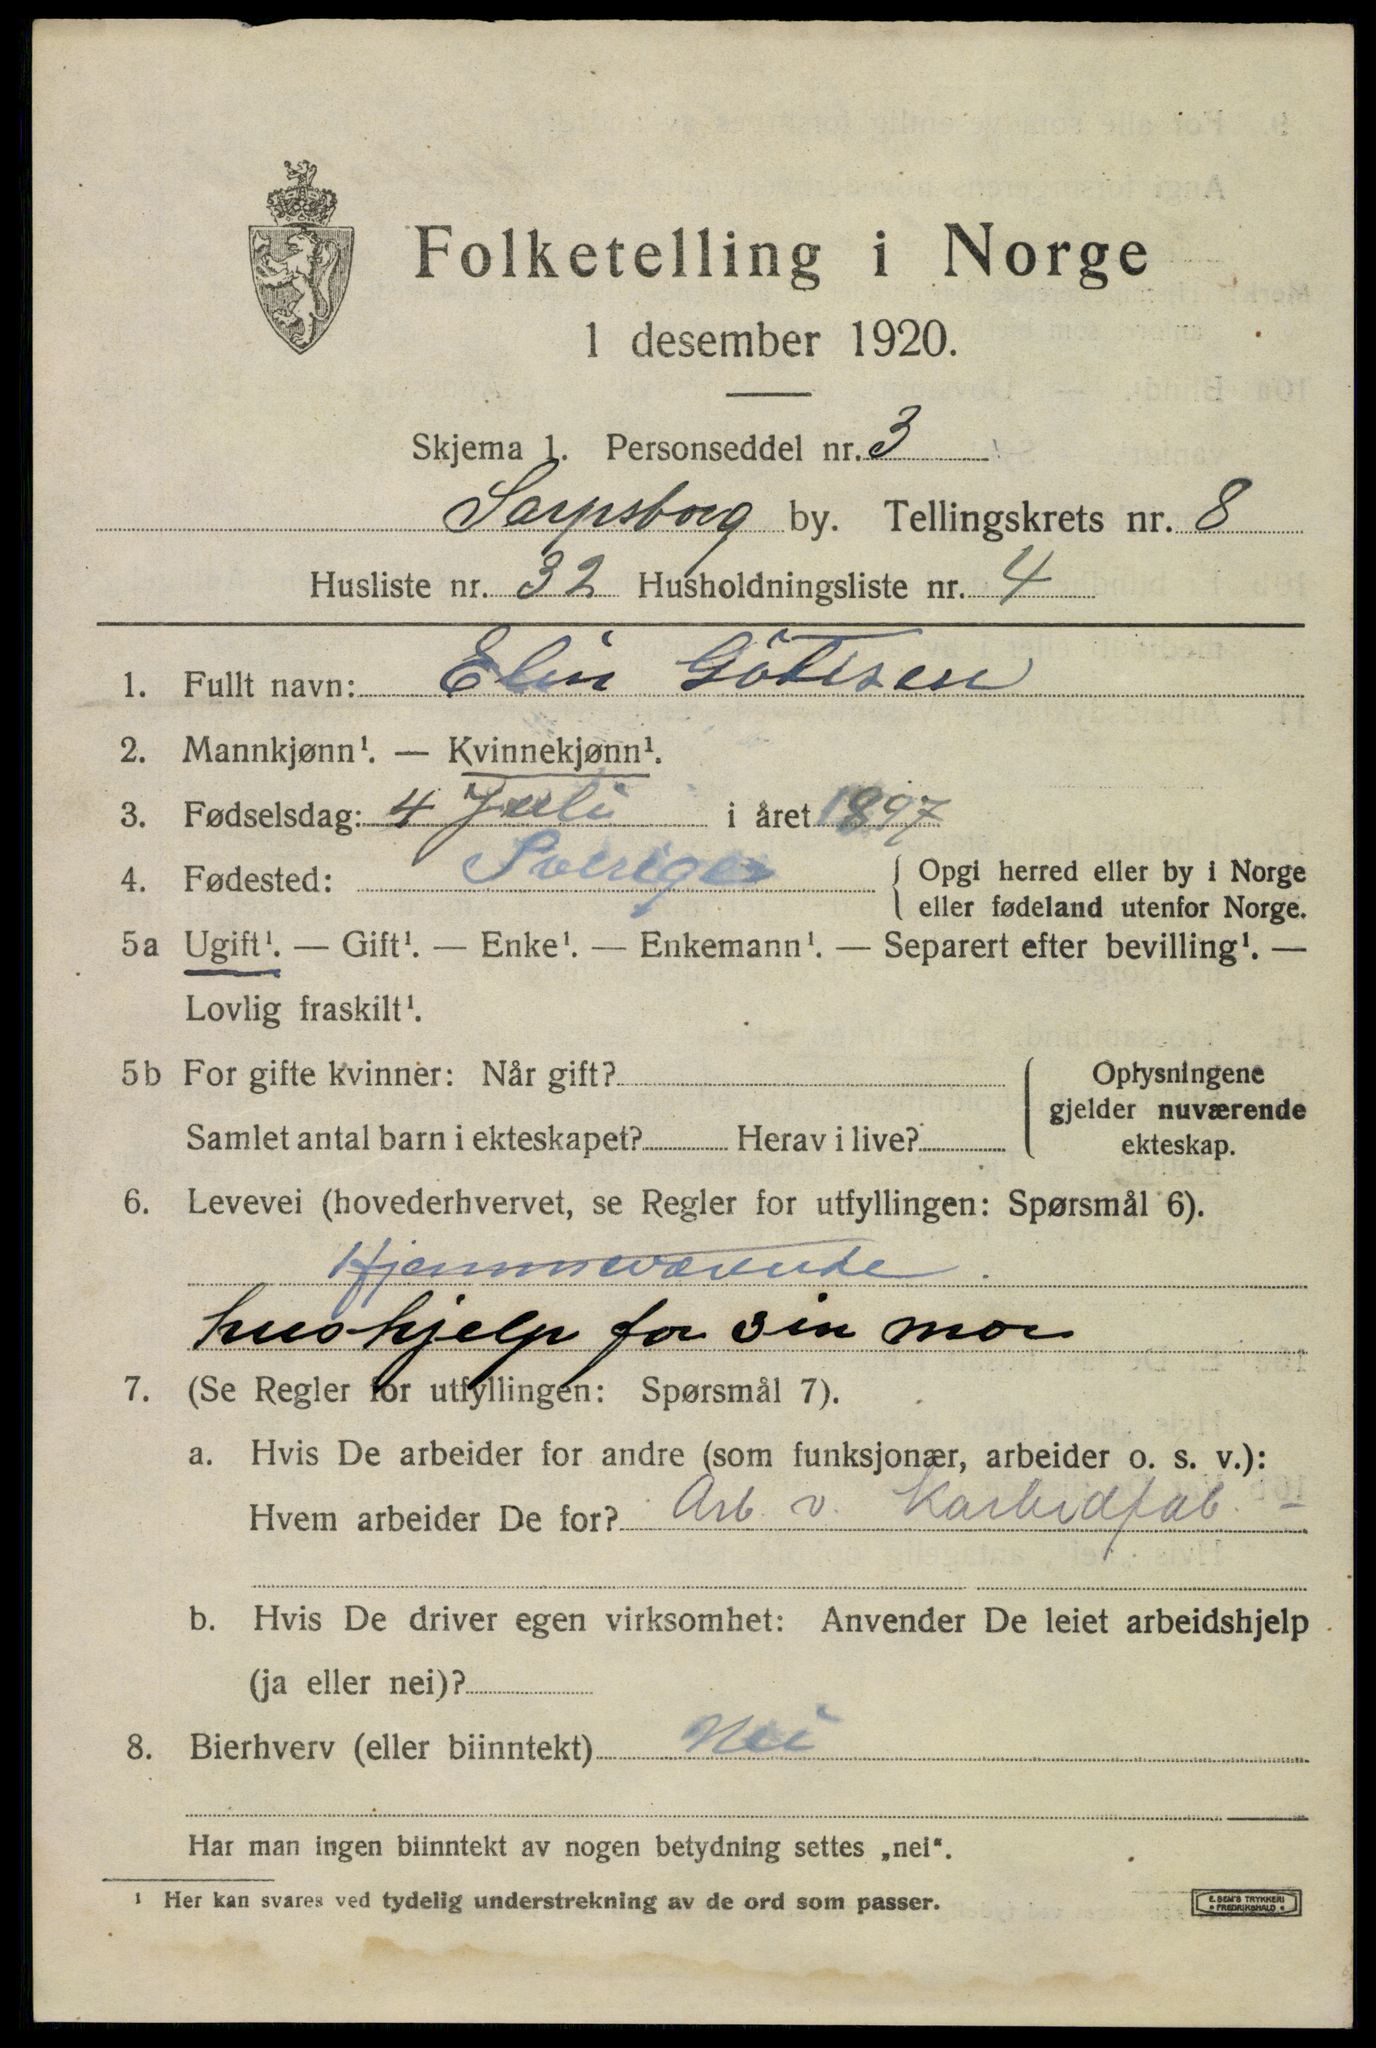 Folketelling i Norge
1 desember 1920.
Skjema 1. Personseddel nr. 3
Sarpsborg by. Tellingskrets nr. 8
Husliste nr. 32 Husholdningsliste nr. 4
1. Fullt navn: Elin Götesen
2. Mannkjønn¹. — Kvinnekjønn¹.
3. Fødselsdag: 4 Juli i året 1897
4. Fødested: Sverige { Opgi herred eller by i Norge
eller fødeland utenfor Norge.
5a Ugift¹. — Gift¹. — Enke¹. — Enkemann¹. — Separert efter bevilling¹. —
Lovlig fraskilt¹.
5b For gifte kvinner: Når gift?
Samlet antal barn i ekteskapet? Herav i live?
{ Oplysningene
gjelder nuværende
ekteskap.
6. Levevei (hovederhvervet, se Regler for utfyllingen: Spørsmål 6).
Hjemmeværende.
hushjelp for sin mor
7. (Se Regler for utfyllingen: Spørsmål 7).
a. Hvis De arbeider for andre (som funksjonær, arbeider o. s. v.):
Hvem arbeider De for? Arb. v. Karbidfab.
b. Hvis De driver egen virksomhet: Anvender De leiet arbeidshjelp
(ja eller nei)?
8. Bierhverv (eller biinntekt) Nei
Har man ingen biinntekt av nogen betydning settes „nei“.
¹ Her kan svares ved tydelig understrekning av de ord som passer.
E. SEM'S TRYKKERI
• FREDRIKSHALD •